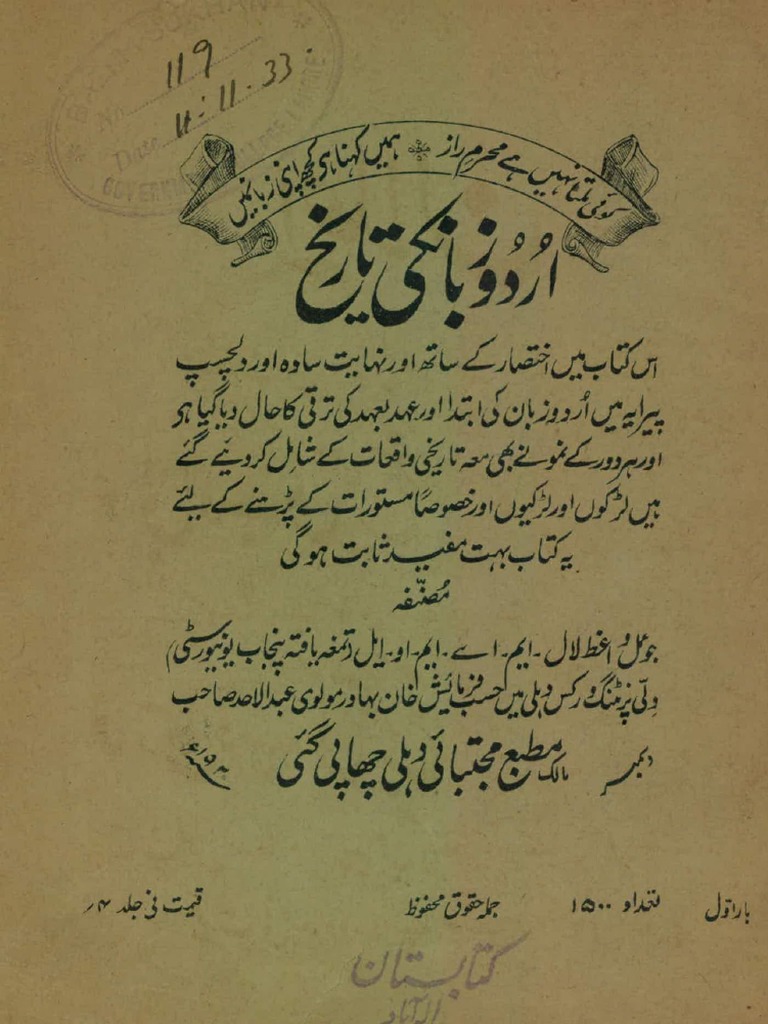 No. 119
Date 11-11-33
کوئی ملتا نہیں ہے محرم راز ٭ ہمیں کہنا ہی کچھ اپنی زبانمیں
اُردُو زبانکی تاریخ
اس کتاب میں اختصار کے ساتھ اور نہایت سادہ اور دلچسپ
پیرایہ میں اُردو زبان کی ابتدا اور عہد بعہد کی ترقی کا حال دیا گیا ہی
اور ہر دور کے نمونے بھی معہ تاریخی واقعات کے شامل کردیئے گئے
ہیں لڑکوں اور لڑکیوں اور خصوصاً مستورات کے پڑہنے کے لیئے
یہ کتاب بہت مفید ثابت ہوگی
مُصنّفہ
جوئل واعظ لال ۔ ایم ۔ اے ۔ ایم ۔ او ۔ ایل (تمغہ یافتہ پنجاب یونیورسٹی)
دلّی پرنٹنگ ورکس دہلی میں حسب فرمایش خان بہادر مولوی عبدالاحد صاحب
مالک مطبع مجتبائی دہلی چھاپی گئی
دسمبر
بار اول تعداد ۱۵۰۰ جملہ حقوق محفوظ قیمت فی جلد ۴؍
کتابستان
الہ آباد